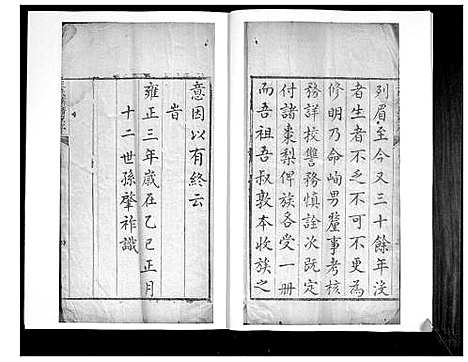 列眉至今又三十餘年沒
者生者不乏不可不更為
修明乃命峋男釐事考核
務詳校讐務慎詮次既定
付諸棗梨俾族各受一冊
而吾祖吾叔敦本收族之
意因以有終云
旹
雍正三年歲在乙巳正月
十二世孫肇祚識